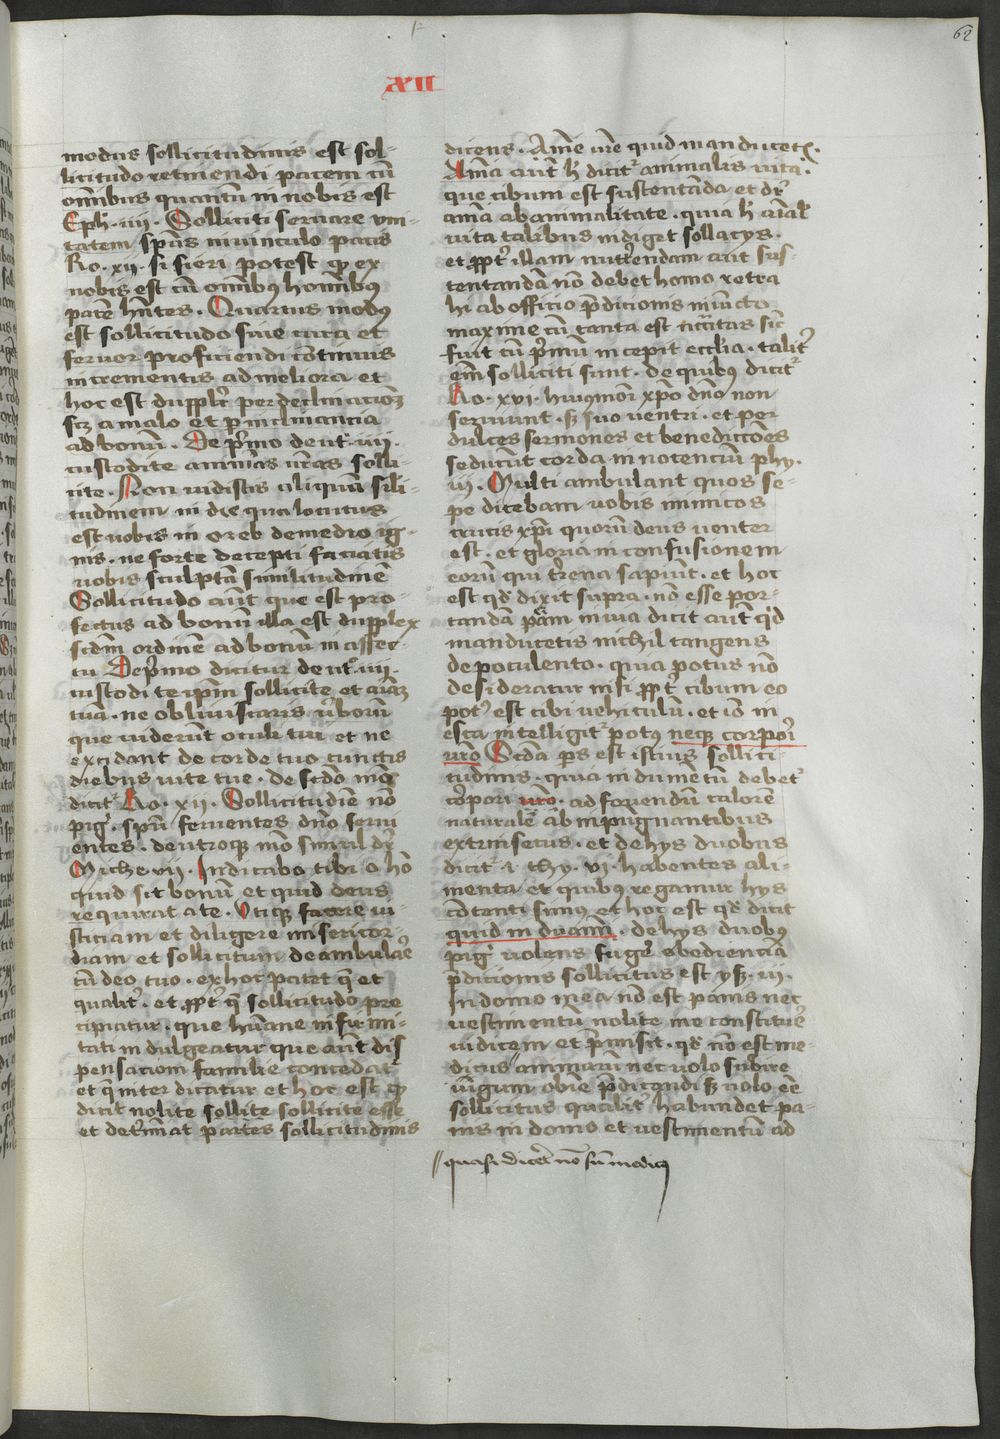 62
XII
modus sollicitudinis est sol-
licitudo retinendi pacem cū
omībus quantū in nobis est
Eph. iiii. Solliciti seruare vni-
tatem spūs in uinculo pacis
Ro. xii. si fieri potest qɜ ex
nobis est cū omībꝫ homībꝫ
pacē hntes. Quartus modꝫ
est sollicitudo siue cura et
feruor proficiendi cōtinuis
in crementis ad meliora et
hoc est dupplr per declinacioꝫ
scꝫ a malo et p inclinancia
ad bonū. De pͥmo deut. iiii.
custodite animas uras solli-
cite. Non uidistis aliquā sili-
tudinem in die qua locutus
est uobis in oreb de medio ig-
nis. ne forte decepti faciatis
uobis sculptā similitudinē
Sollicitudo aūt que est pro-
fectus ad bonū illa est dupplex
scdm ordinē ad bonū in affec-
tu De pͥmo dicitur deut. iiii.
custodi te ipm sollicite et aīaꝫ
tuā. ne obliuiscaris uͦborū
que uiderunt oculi tui et ne
excidant de corde tuo cunctis
diebus uite tue. de scdo mō
dicitͬ Ro. xii. Sollicitudīe nō
pigͥ. spū feruentes dno serui
entes. de utroqɜ mō simul dr
Miche. vii. Indicabo tibi o hō
quid sit bonū et quid deus
requirat a te. Vtiqɜ facere iu-
sticiam et diligere misericor-
diam et sollicitum deambulaͤ
cū deo tuo. ex hoc patet qͣ et
qualitͬ. et ppt qͣ sollicitudo pre
cipiatur. que hūane infirmi-
tati in dulgeatur que aūt dis
pensacioni familie concedatͬ
et qͣ inter dicatur et hoc est qɜ
dicit nolite sollite sollicite esse
et detmīat partes sollicitudinis
dicens. Aīme ure quid manducetꝭ.
Aīma aūt hͥ dicitͬ animalis uita.
que cibum est sustentāda et dr
aīma ab animalitate. quia hͥ aīal
uita talibus indiget sollacys.
et ppt illam nutͥendam aut sus-
tentandā nō debet homo retra
hi ab officio pͤdicionis iniuncto
maxime cū tanta est necitas sic
fuit cū pͥmū in cepit ecclia. talitͬ
em solliciti sunt. de quibꝫ dicitͬ
Ro. xvi. huiꝰmōi xpo dno non
seruiunt. sꝫ suo ventri. et per
dulces sermones et benedictōes
seducūt corda innotenciū phy.
iii. Multi ambulant quos se-
pe dicebam uobis inimicos
crucis xpi quorū deus uenter
est. et gloria in confusionem
eorū qui tͬrena sapiūt. et hoc
est qd dixit supra. nō esse por-
tandā pāꝫ in uia dicit aūt qd
manducetis nichil tangens
de poculento. quia potus nō
desideratur nisi ppt cibum eo
potꝰ est cibi uehiculū. et iō in
esca intelligitͬ potꝰ neqɜ corpoī
uro Scda ps est istius solliciti
tudinis. quia indumētū debetͬ
corpori uro. ad fouendū calorē
naturalē ab in pugnantibus
extrinsecus. et de hys duobus
dicitͬ i. thy. vi. habentes ali-
menta et quibꝫ tegamur hys
cōtenti simꝰ et hoc est qd dicit
quid in duamī. de hys duobꝫ
pigͥ uolens fugͤ ebedienciā
pͤdicionis sollicitus est ysꝫ. iii.
In domo mea nō est panis nec
vestimentū nolite me constituͤ
iudicem et pͤmisit. qd nō est me-
dicus // animarū nec uolo subire
iungum obīe pͤdicandi sꝫ uolo eē
sollicitus qualitͬ habundet pa-
nis in domo et uestimentū ad
// quasi dicēt nō sū medicꝰ